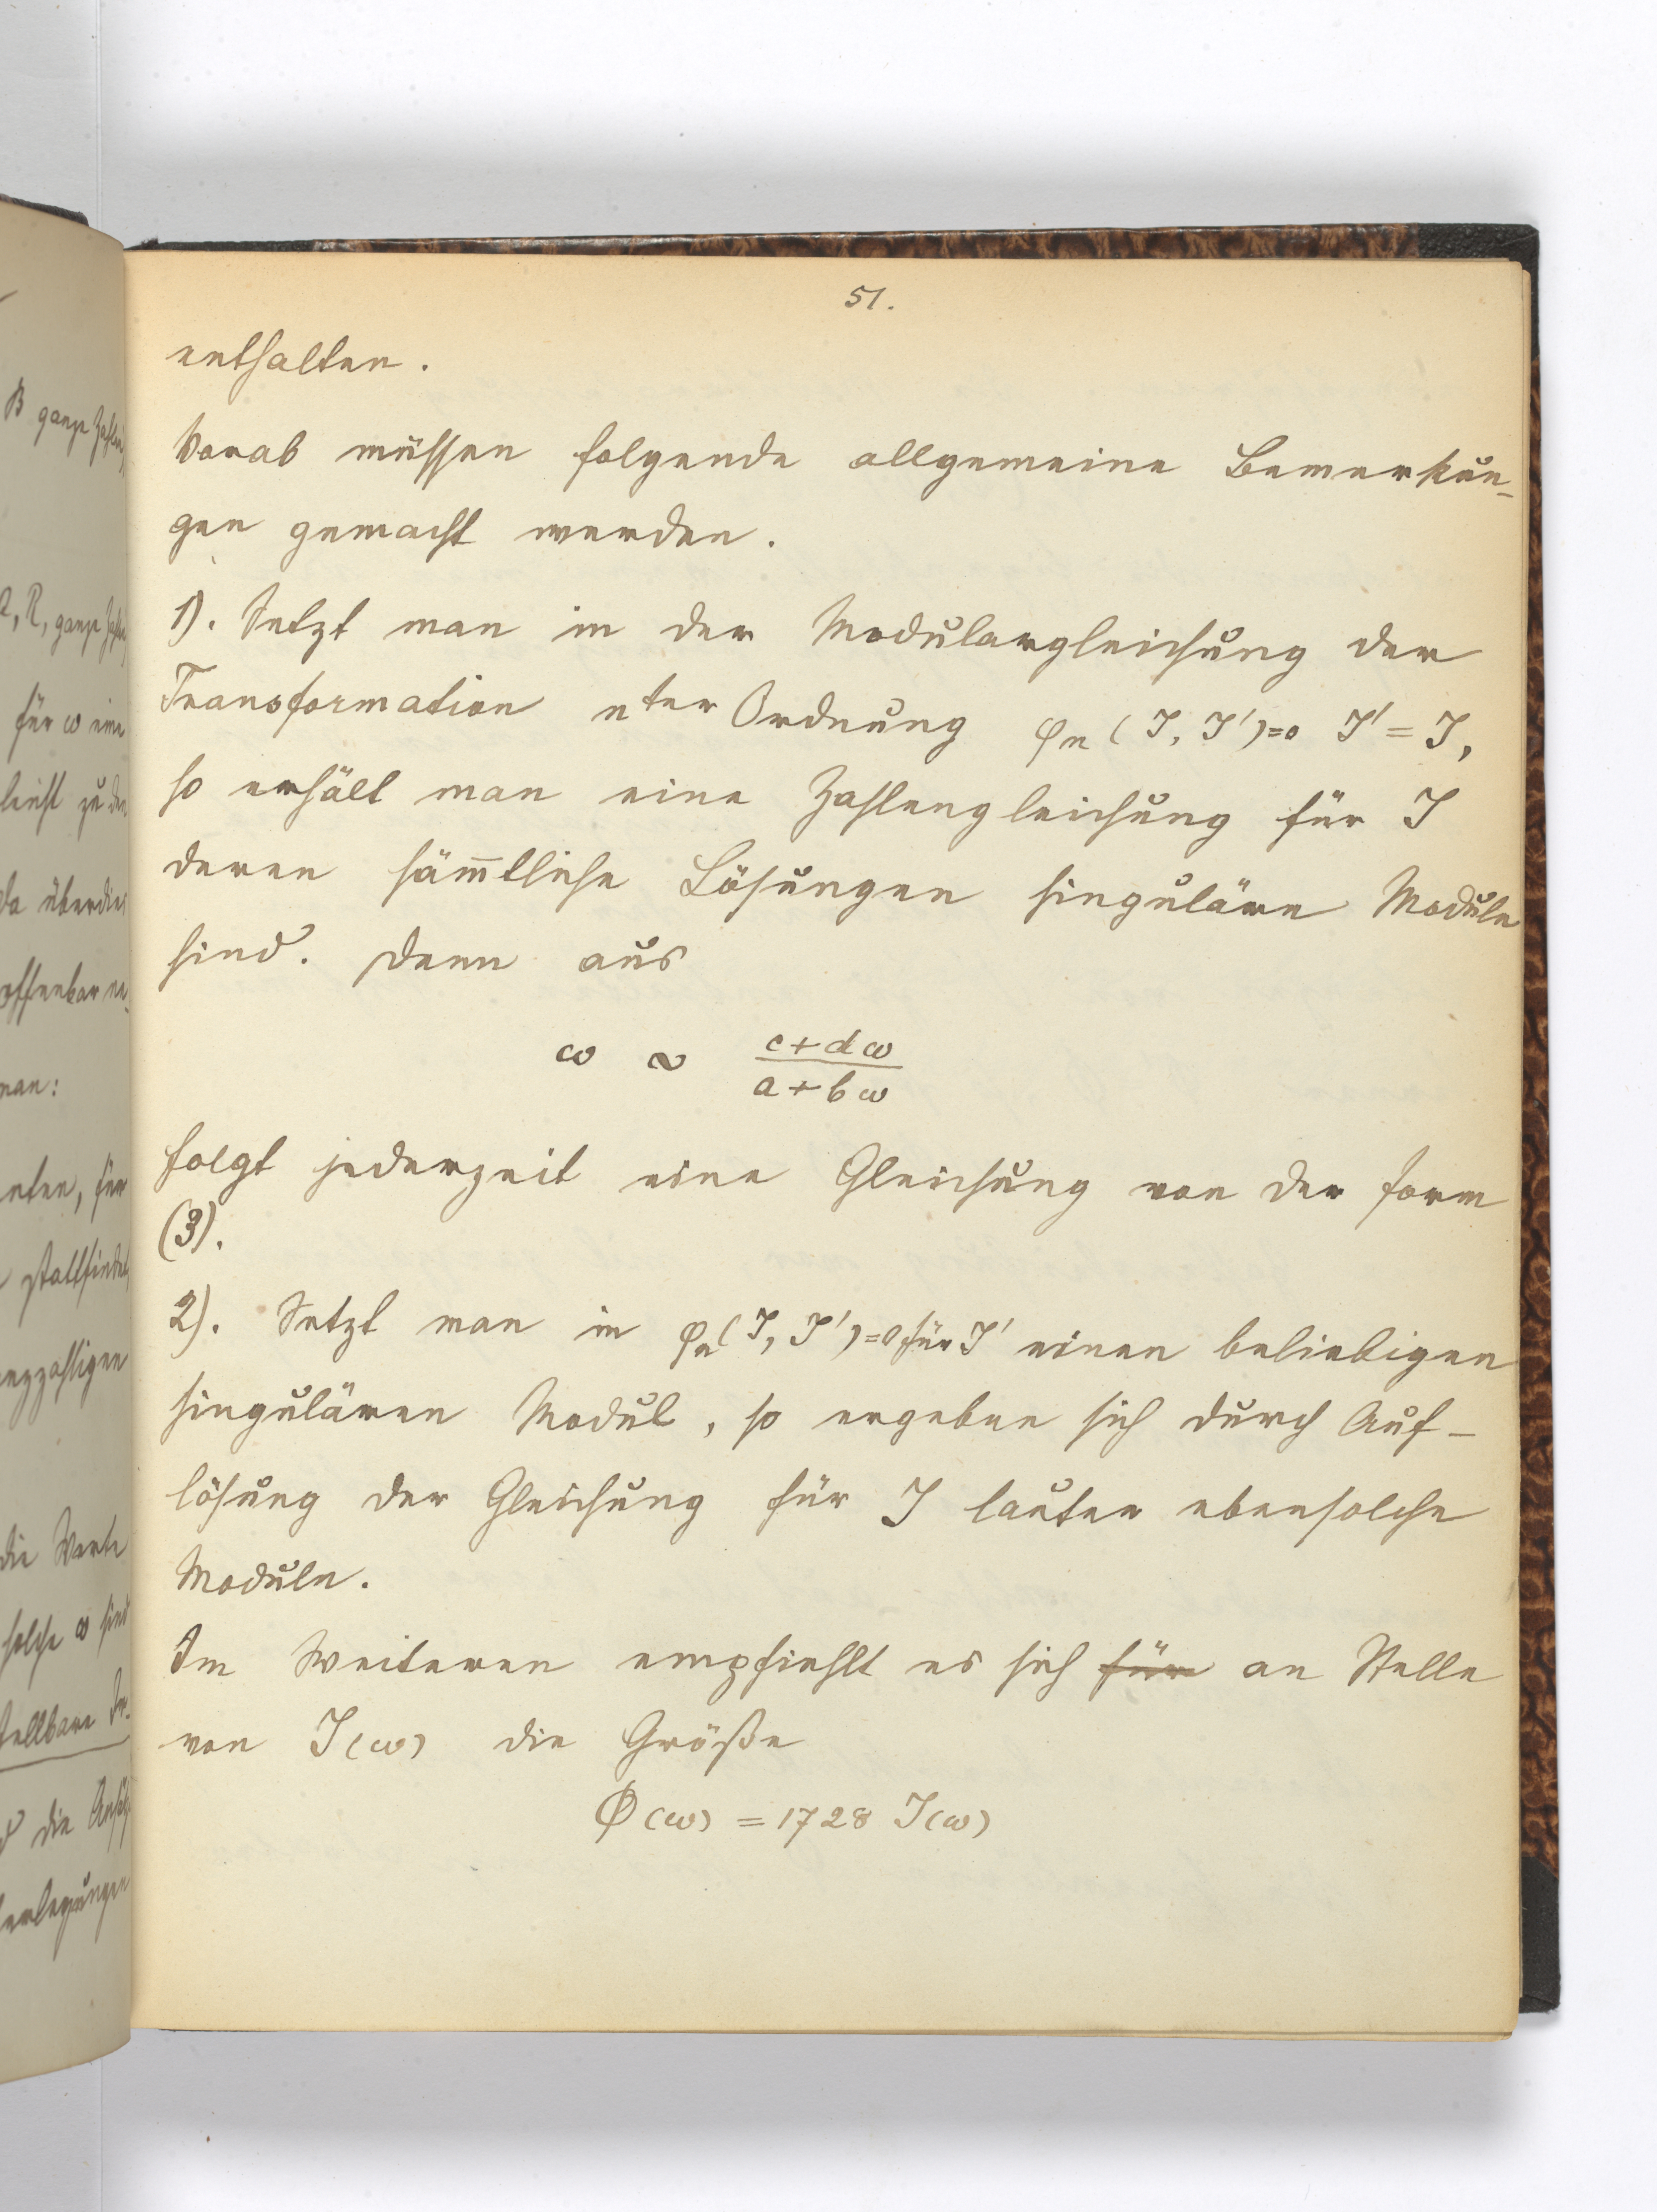 51.
enthalten.
Vorab müssen folgende allgemeine Bemerkun-
gen gemacht werden.
1). Setzt man in der Modulargleichung der
Transformation nter Ordnung φn (J, J')=0 J' = J,
so erhält man eine Zahlengleichung für J
deren säm̄tliche Lösungen singuläre Moduln
sind. Denn aus
ω ∾ (c+dω)/(a+bω)
folgt jederzeit eine Gleichung von der Form
(3).
2). Setzt man in φn(J, J')=0 für J' einen beliebigen
singulären Modul, so ergeben sich durch Auf-
lösung der Gleichung für J lauter ebensolche
Moduln.
Im Weiteren empfiehlt es sich für an Stelle
von J(ω) die Größe
Φ(ω) = 1728 J(ω)
B ganze Zahlen,
R, ganze Zahlen
für ω eine
leicht zu den
da überdies
offenbar
man:
für
stattfindet
ganzzahligen
die Werte
solche ω sind
die